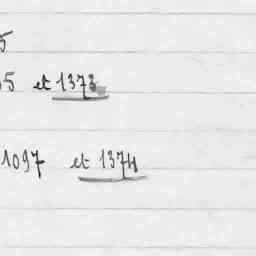 5
55 et 1373
1097 et 1374